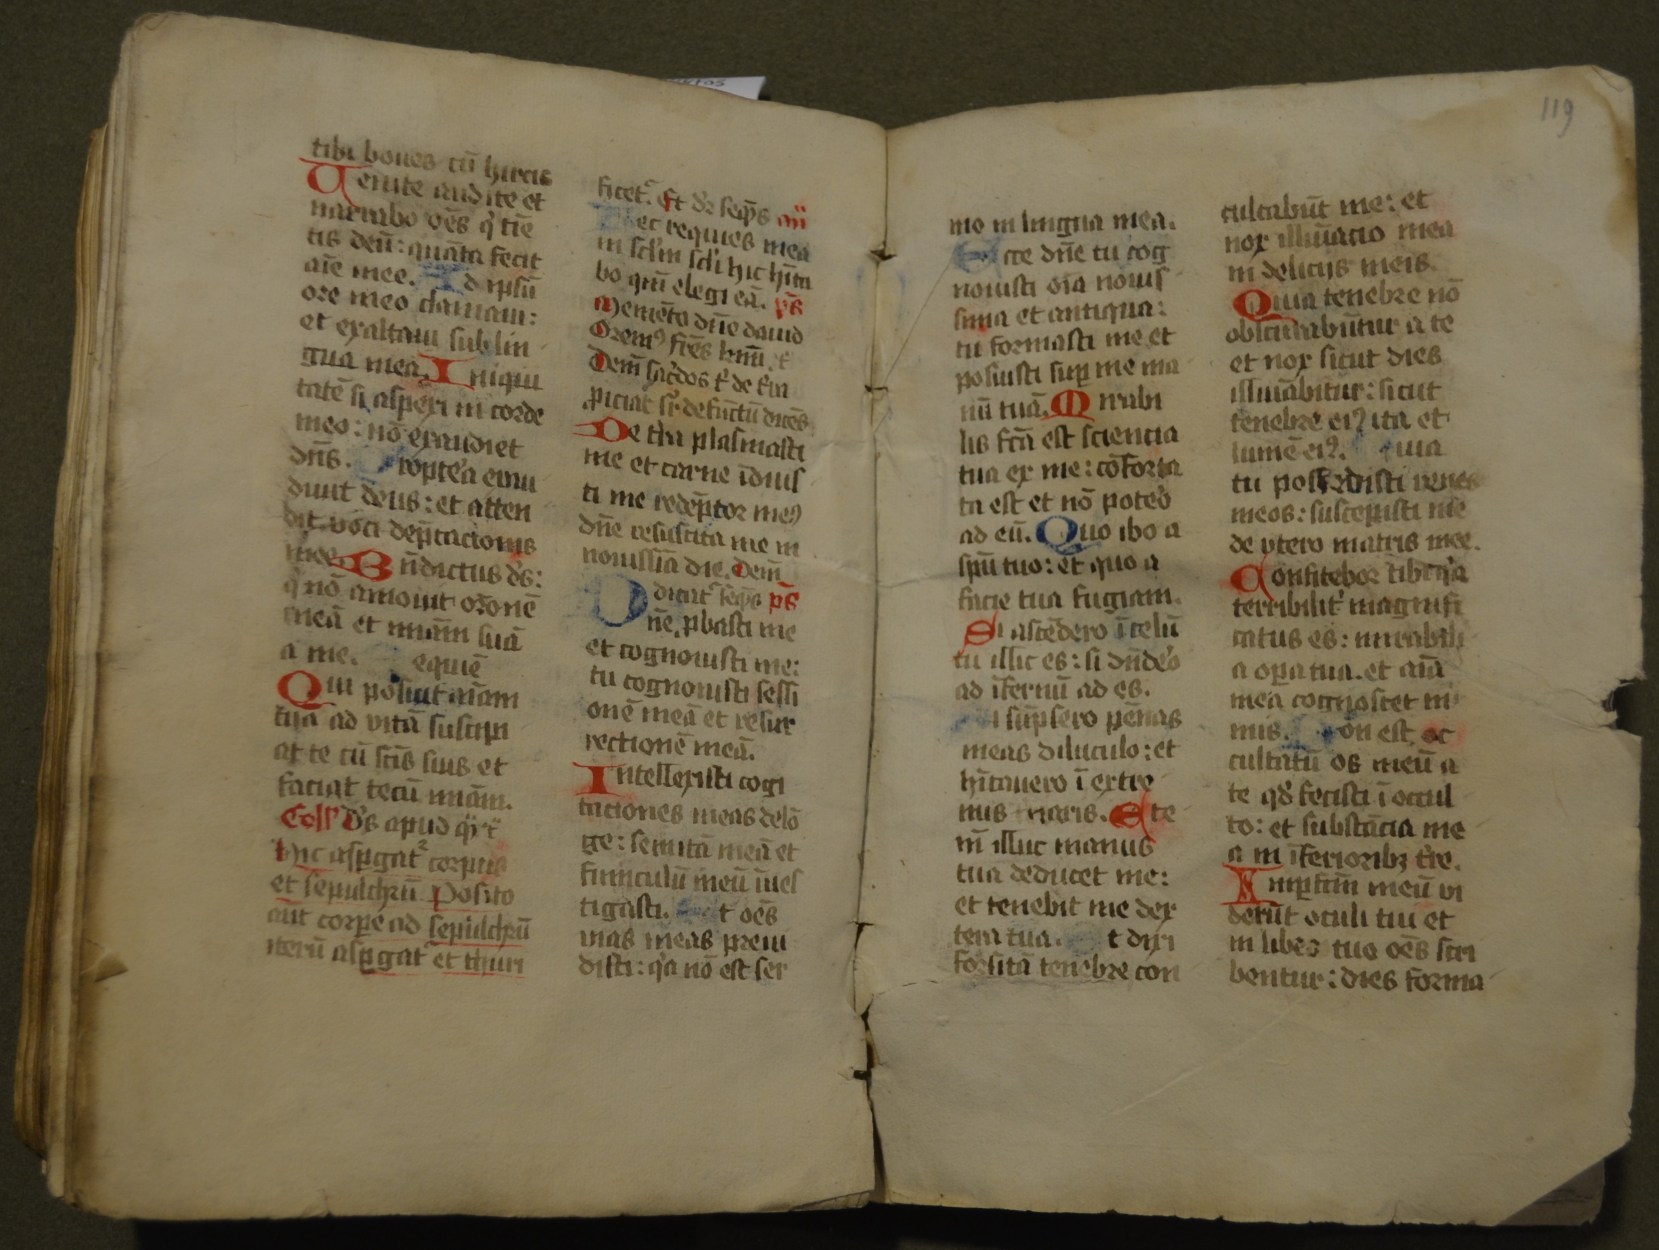 tibi boues cū hircis
Uenite audite et
narrabo oēs q̄ timē
tis deū: quāta fecit
aīe mee. Ad ipsū
ore meo clamaui:
et exaltaui sub lin
gua mea. Iniqui
tatē si aspexi in corde
meo: nō exaudiet
dn̄s. ropte'a exau
diuit deus: et atten
dit voci dep̄tacionis
mee Bn̄dictus ds:
q̄ nō amouit or̄onē
meā et miām suā
a me. equiē
Qui posuit aīam
tuā ad vitā suscipi
at te cū scīs suis et
faciat tecū miām.
Coll' Ds apud
hic asp̄gat corpus
et sepulchrū Posito
aūt corpe ad sepulchrū
iterū asp̄gat et thuri
ficet. Et seq̄s añ
ec requies mea
in sc̄lm sc̄li hic hīta
bo qm̄ elegi eā. ps̄
Memēto dn̄e dauid
Orem9 frēs
Dem̄ sac̄dos
De tr̄a plasmasti
me et carne īduis
ti me redēptor me9
dn̄e resuscita me in
nouissīa die. Dein̄
dicat seq̄s ps̄
Dn̄e pbasti me
et cognouisti me:
tu cognouisti sessi
onē meā et resur
rectionē meā.
Intellexisti cogi
taciones meas delō
ge: semitā meā et
funiculū meū īues
tigasti. t oēs
vias meas preui
disti: q̄a nō est ser
mo in lingua mea.
cce dn̄e tu cog
nouisti oīa nouis
sima et antiqua:
tu formasti me et
posuisti sup me ma
nū tuā. Mirabi
lis fc̄a est sciencia
tua ex me: cōforta
ta est et nō poteo
ad eū. Quo ibo a
spū tuo: et quo a
facie tua fugiam.
Si ascēdero ī celū
tu illic es: si
ad īfernū ad es.
i sūpsero pēnas
meas diluculo: et
hītauero ī extre
mis maris. Ete
nī illuc manus
tua deducet me:
et tenebit me dex
tera tua. t dixi
forsitā tenebre con
culcabūt me: et
nox illuīacio mea
in delicijs meis.
Quia tenebre nō
obscurabūtur a te
et nox sicut dies
illuīabitur: sicut
tenebre ei9 ita et
lumē ei9. uia
tu possedisti renes
meos: suscepisti me
de vtero matris mee.
Confitebor tibi q̄a
terribilit' magnifi
catus es: mirabili
a opa tua. et aīa
mea cognoscet ni
mis. on est oc
cultatū os meū a
te qd fecisti ī occul
to: et substācia me
a in īferiorib3 tr̄e.
Inpfctm̄ meū vi
derūt oculi tui et
in libro tuo oēs scri
bentur: dies forma
119